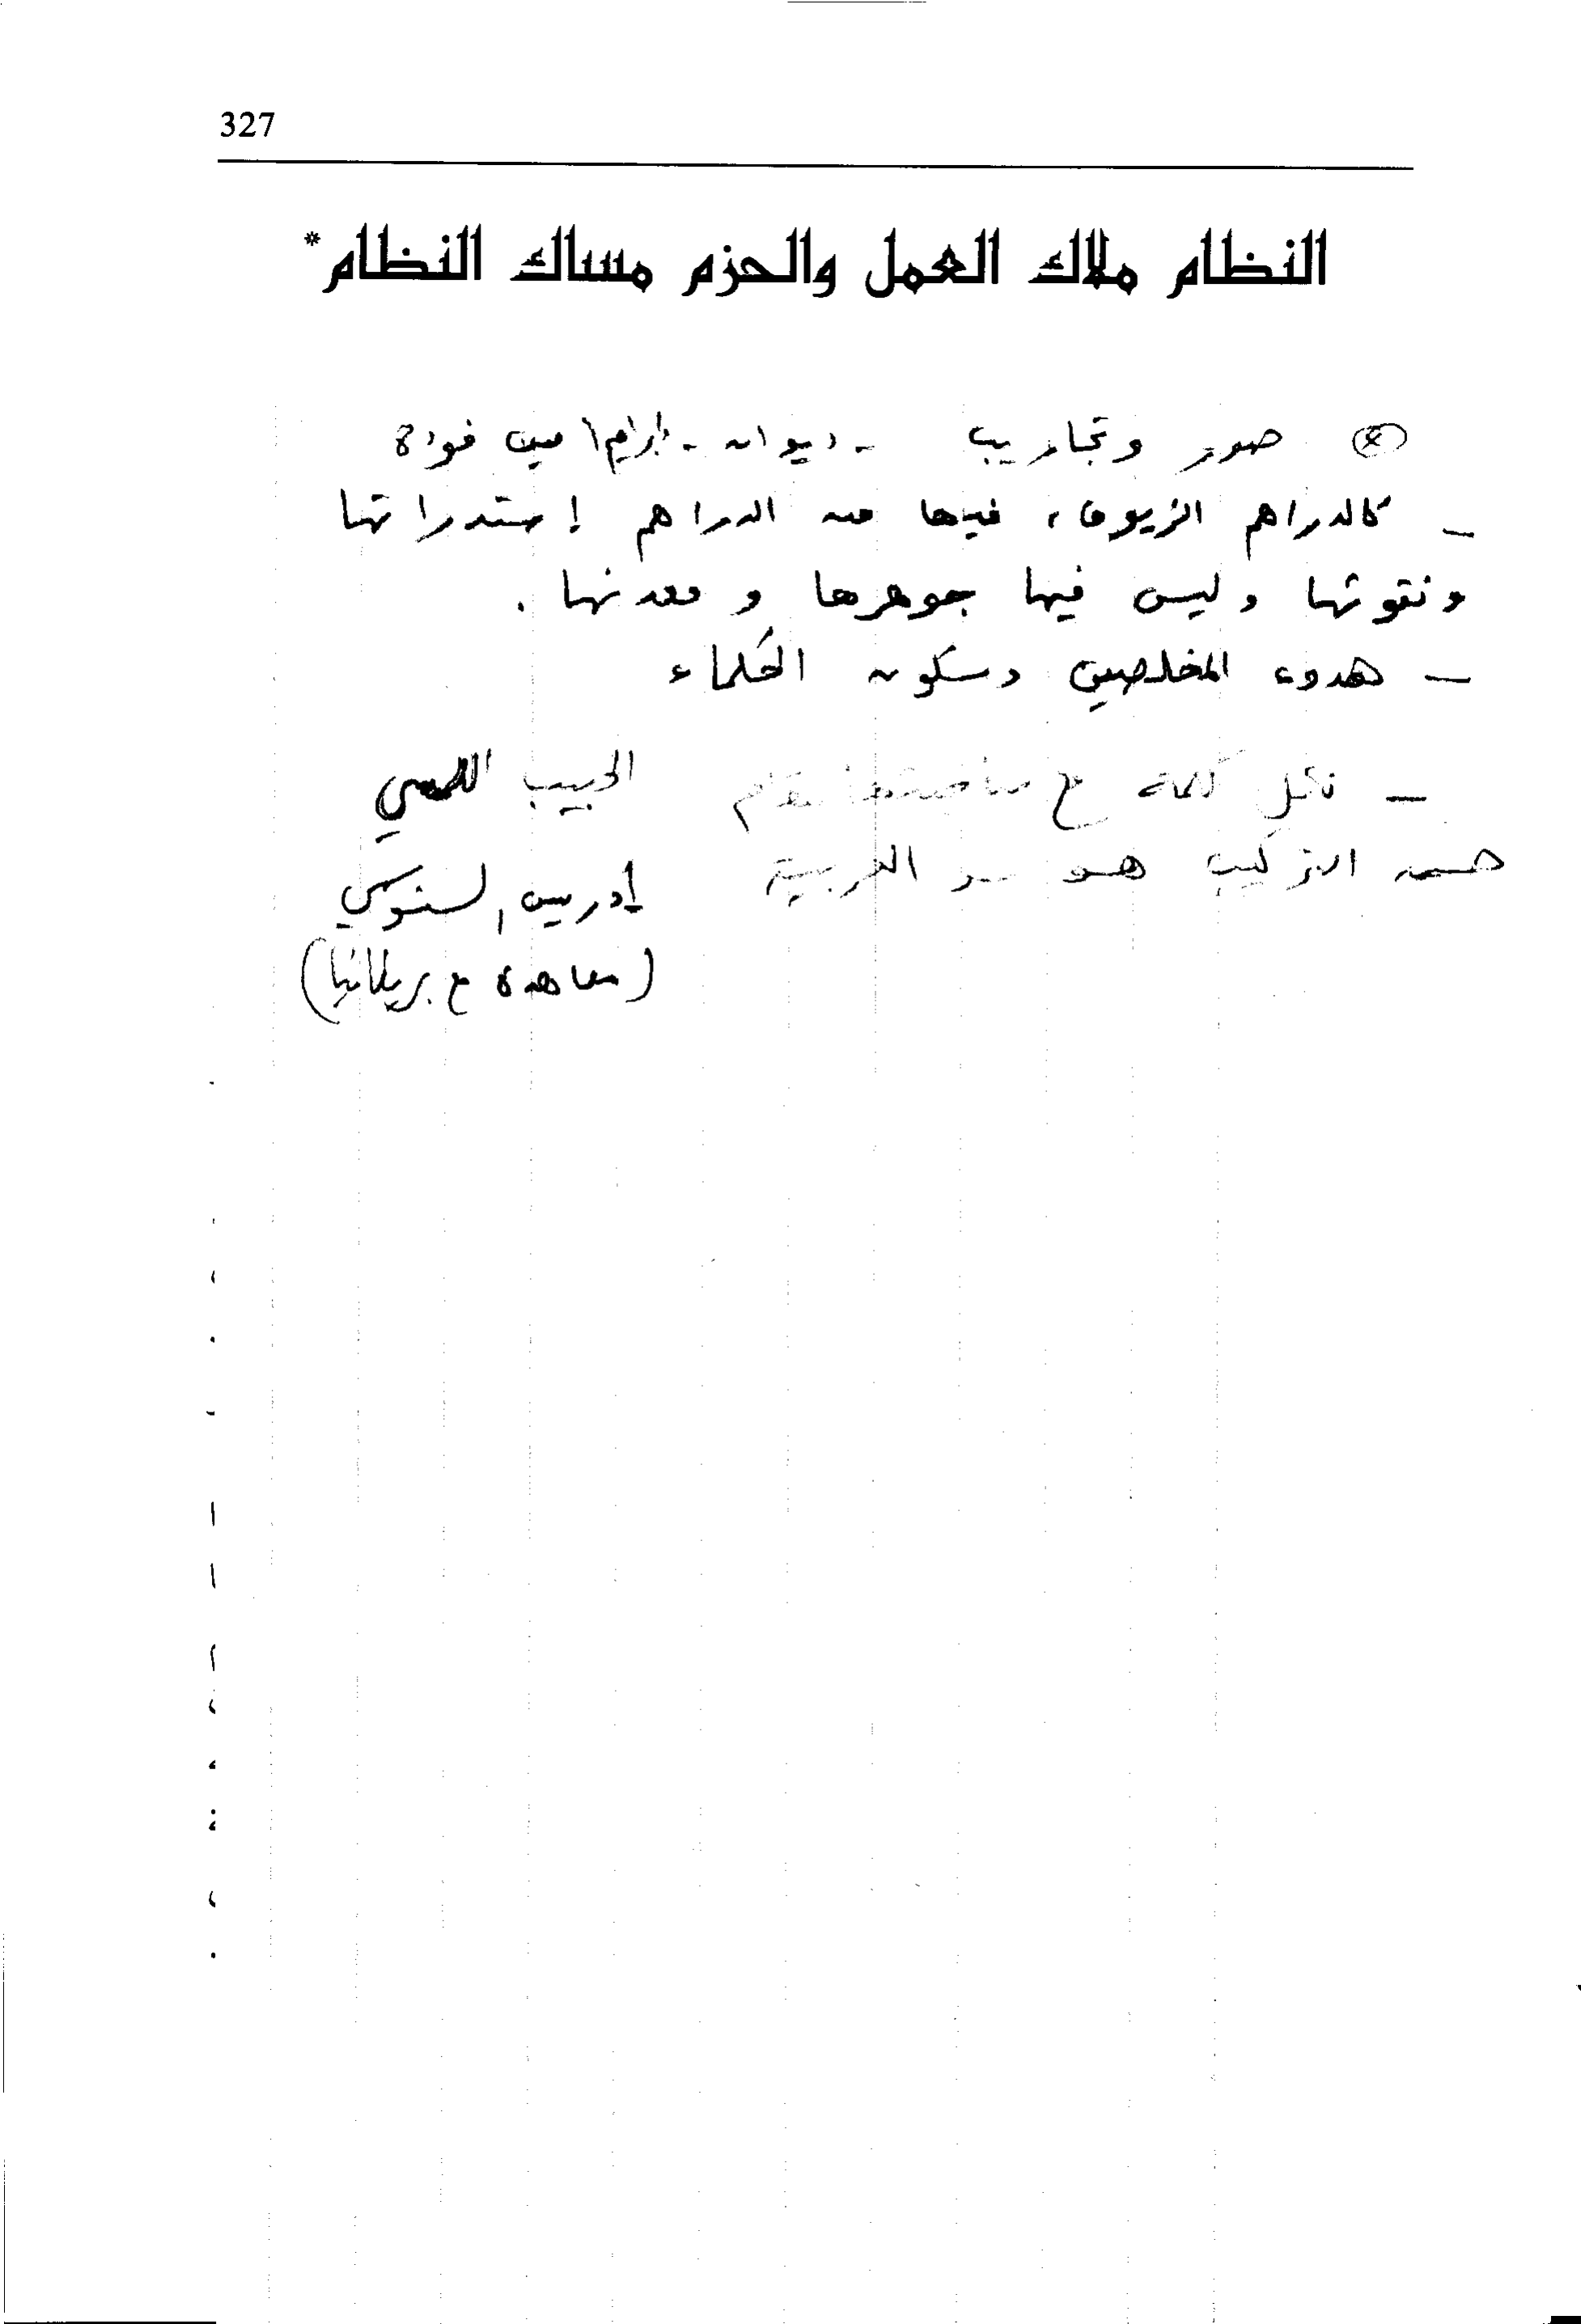 327
النظام ملاك العمل والحزم مساك النظام*
صور وتجاريب - ديوان - إبراهيم امين فودة
ـ كالدراهم الزيوف، فيها من الدراهم إستدراتها
ونقوشها وليس فيها جوهرها و معدنها .
ـ هدوء المخلصين وسكون الحكماء
ـ لكل كلمة مع صاحبتها مقام الحبيب اللمسي
حسن التركيب هو سر العربية
إدريس السنوسي
(معاهدة مع بريطانيا)